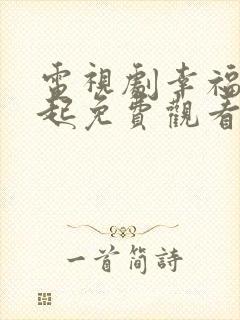 電視劇幸福
起免費觀看
一首简詩